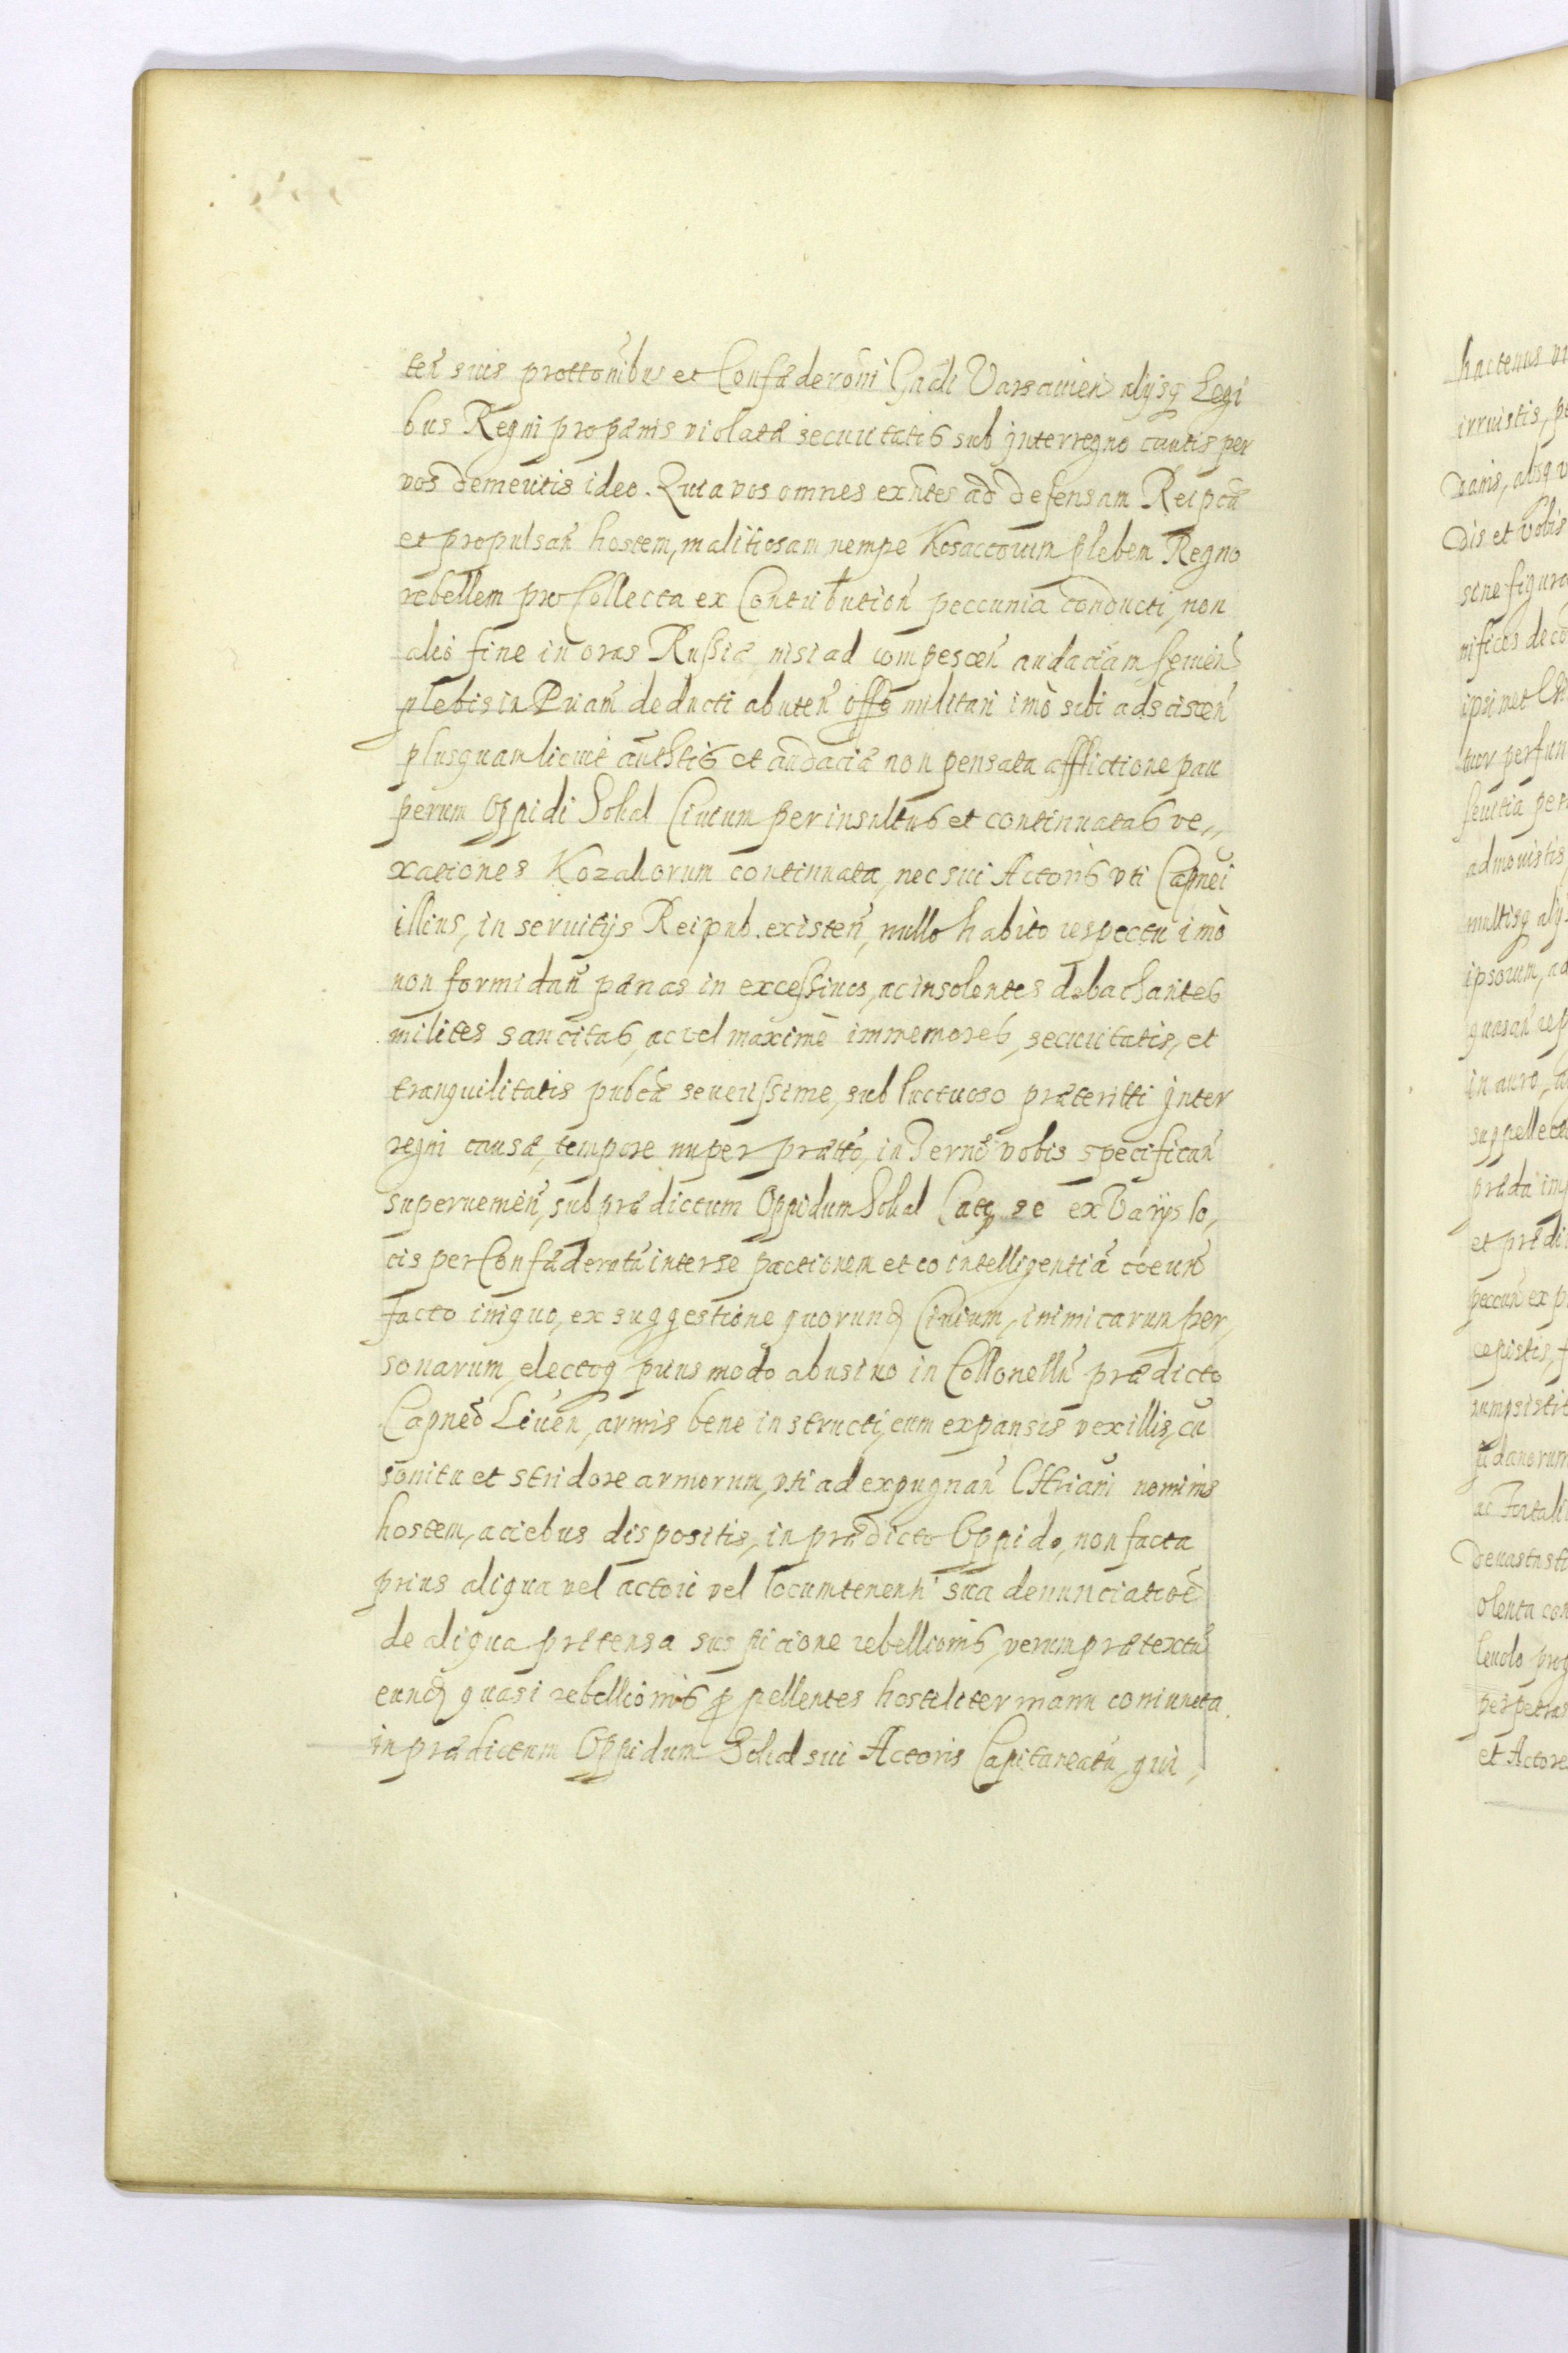 ten̄ suis prottōnibus et Confæderōni Gnali Varsavien̄ alijsq Legi
bus Regni pro pænis violatæ securitatis sub interregno cunctis per
vos demeritis ideo. Quia vos omnes exn̄tes ad defensam Reipcæ
et propulsan̄ hostem, malitiosam nempe Kosaccorum plebem Regno
rebellem pro Collecta ex Contribution̄ peccunia conducti, non
alio fine in oras Russiæ nisi ad compescen̄ audaciam sęuien̄
plebis in Priam̄ deducti abuten̄ offo militari imò sibi adsciscen̄
plusquam licuit authtis et audaciæ non pensata afflictione pau
perum Oppidi Sokal Civium per insultus et continuatas ve„
xationes Kozakorum continuata, nec sui Actoris uti Capnei
illius, in servitijs Reipub. existen̄, nullo habito respectu imò
non formidan̄ pænas in excessivos, ac insolentes debachantes
milites sancitas, ac vel maximè immemores, securitatis, et
tranquilitatis pubcæ severissime, sub luctuoso præteritti Inter
regni causæ, tempore nuper prætto, in Termō vobis specifican̄
supervemen̄, sub prædictum Oppidum Sokal se ex Varijs lo,
cis per Confæderatū inter se pactionem et cointelligentiā coeun̄
facto iniquo, ex suggestione quorund Civium, inimicarum per,
sonarum, electoq prius modo abusivo in Collonellū prædicto
Capneo Liven, armis bene instructi, cum expansis vexillis, cū
sonitu et stridore armorum, uti ad expugnan̄ Chriani nominis
hostem, aciebus dispositis, in prædicto Oppido, non facta
prius aliqua vel actori vel locumtenenti sua denunciatioē
de aliqua prætensa suspicione rebellionis, verum prætextū
eund quasi rebellionis ꝓpellentes hostiliter manu coniuncta
in prædictum Oppidum Sokal sui Actoris Capitaneatū, qui,
hactenus
irruistis,
Danis, absq
Dis et vobis
sine figura
nifices
ipsi net
tur per fun
sevitia per
admovistis
multisq alijs
ipsorum, ac
quasan̄ rep
in auro,
suppellect
præda im
et prædi
peccun̄ ex p
cepistis,
sumpsistis
Judæorum
ac Fortali
Devastast
olenta con
lendo prop
perpetras
et Actore